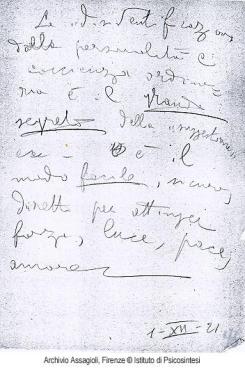 La "disidentificazione
dalla personalità e
coscienza ordina
ria è il grande
segreto della "suggestione"
è il
modo facile, sicuro,
diretto per attingere
forza, luce, pace,
amore
1-XII-21.
Archivio Assagioli, Firenze © Istituto di Psicosintesi